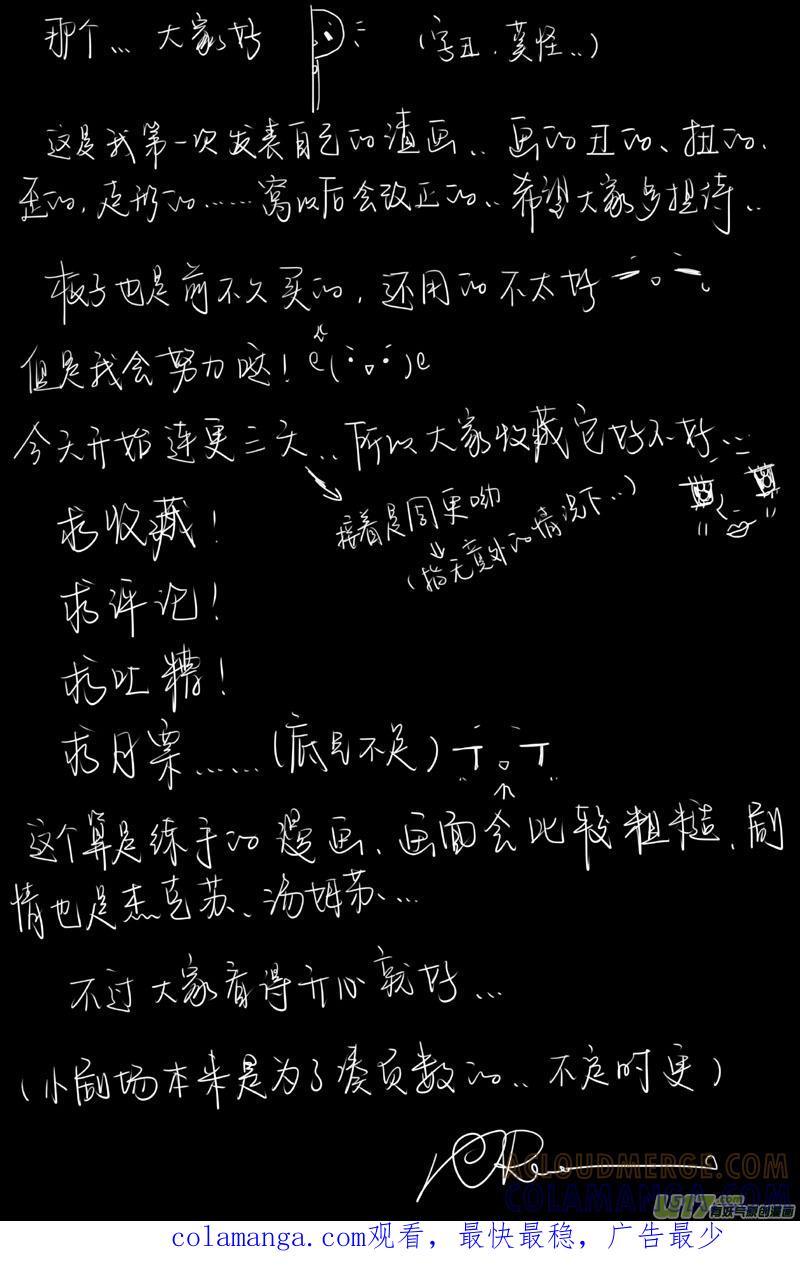 那个... 大家好 (字丑.莫怪..)
这是我第一次发表自己的渣画.. 画的丑的、扭的、
歪的,走形的……窝以后会改正的..希望大家多担待..
板子也是前不久买的,还用的不太好
但是我会努力哒!e(∵。∵)e
今天开始连更三天..所以大家收藏它好不好..
接着是周更呦
(指无意外的情况下..)
求收藏!
求评论!
求吐糟!
求月票……(底气不足)
这个算是练手的漫画、画面会比较粗糙、剧
情也是杰克苏、汤姆苏...
不过大家看得开心就好...
(小剧场本来是为了凑页数的..不定时更)
ACLOUDMERGE.COM
COLAMANGA.COM
U17.com
有妖气原创漫画
colamanga.com观看，最快最稳，广告最少